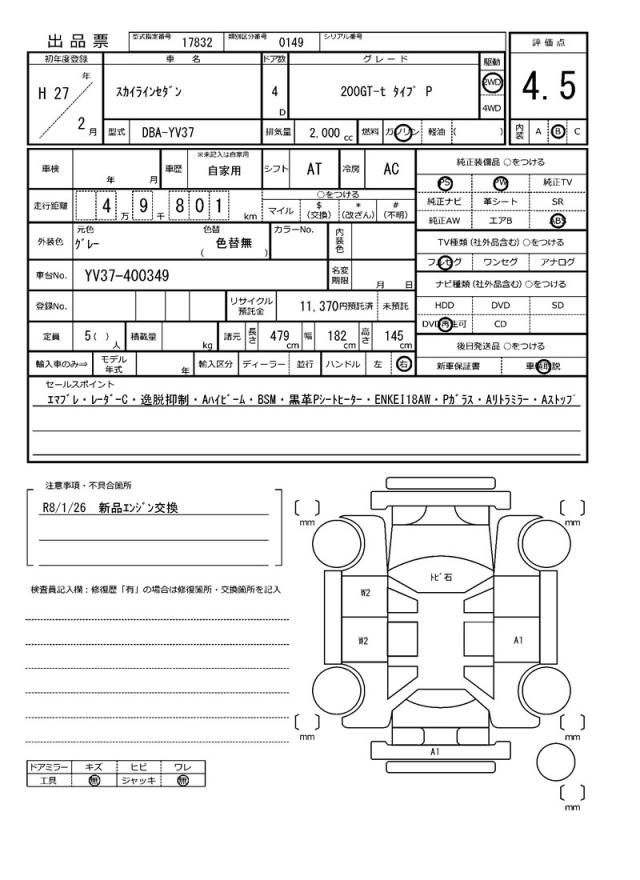 出品票 型式指定番号 17832 類別区分番号 0149 シリアル番号
初年度登録 車名 ドア数 グレード 駆動 評価点
H 27 年 2 月 スカイラインセダン 4 D 200GT-t タイプ P 2WD 4WD 4.5
型式 DBA-YV37 排気量 2,000 cc 燃料 ガソリン 軽油 ( ) 内装 A B C
車検 年 月 車歴 ※未記入は自家用 自家用 シフト AT 冷房 AC
走行距離 4 万 9 千 8 0 1 km ○をつける マイル $ (交換) * (改ざん) # (不明)
外装色 元色 グレー 色替 ( 色替無 ) カラーNo. 内装色
車台No. YV37-400349 名変期限 月 日
登録No. リサイクル預託金 11,370円預託済 未預託
定員 5( )人 積載量 kg 諸元 長さ 479 cm 幅 182 cm 高さ 145 cm
輸入車のみ⇒ モデル年式 年 輸入区分 ディーラー 並行 ハンドル 左 右
純正装備品 ○をつける
PS PW 純正TV
純正ナビ 革シート SR
純正AW エアB ABS
TV種類(社外品含む)○をつける
フルセグ ワンセグ アナログ
ナビ種類(社外品含む)○をつける
HDD DVD SD
DVD再生可 CD
後日発送品 ○をつける
新車保証書 車輌取説
セールスポイント
エマブレ・レーダーC・逸脱抑制・Aハイビーム・BSM・黒革Pシートヒーター・ENKEI18AW・Pガラス・Aリトラミラー・Aストップ
注意事項・不具合箇所
R8/1/26 新品エンジン交換
検査員記入欄:修復歴「有」の場合は修復箇所・交換箇所を記入
ドアミラー キズ ヒビ ワレ
工具 無 ジャッキ 無
mm
mm
トビ石
W2
W2
A1
mm
mm
A1
mm